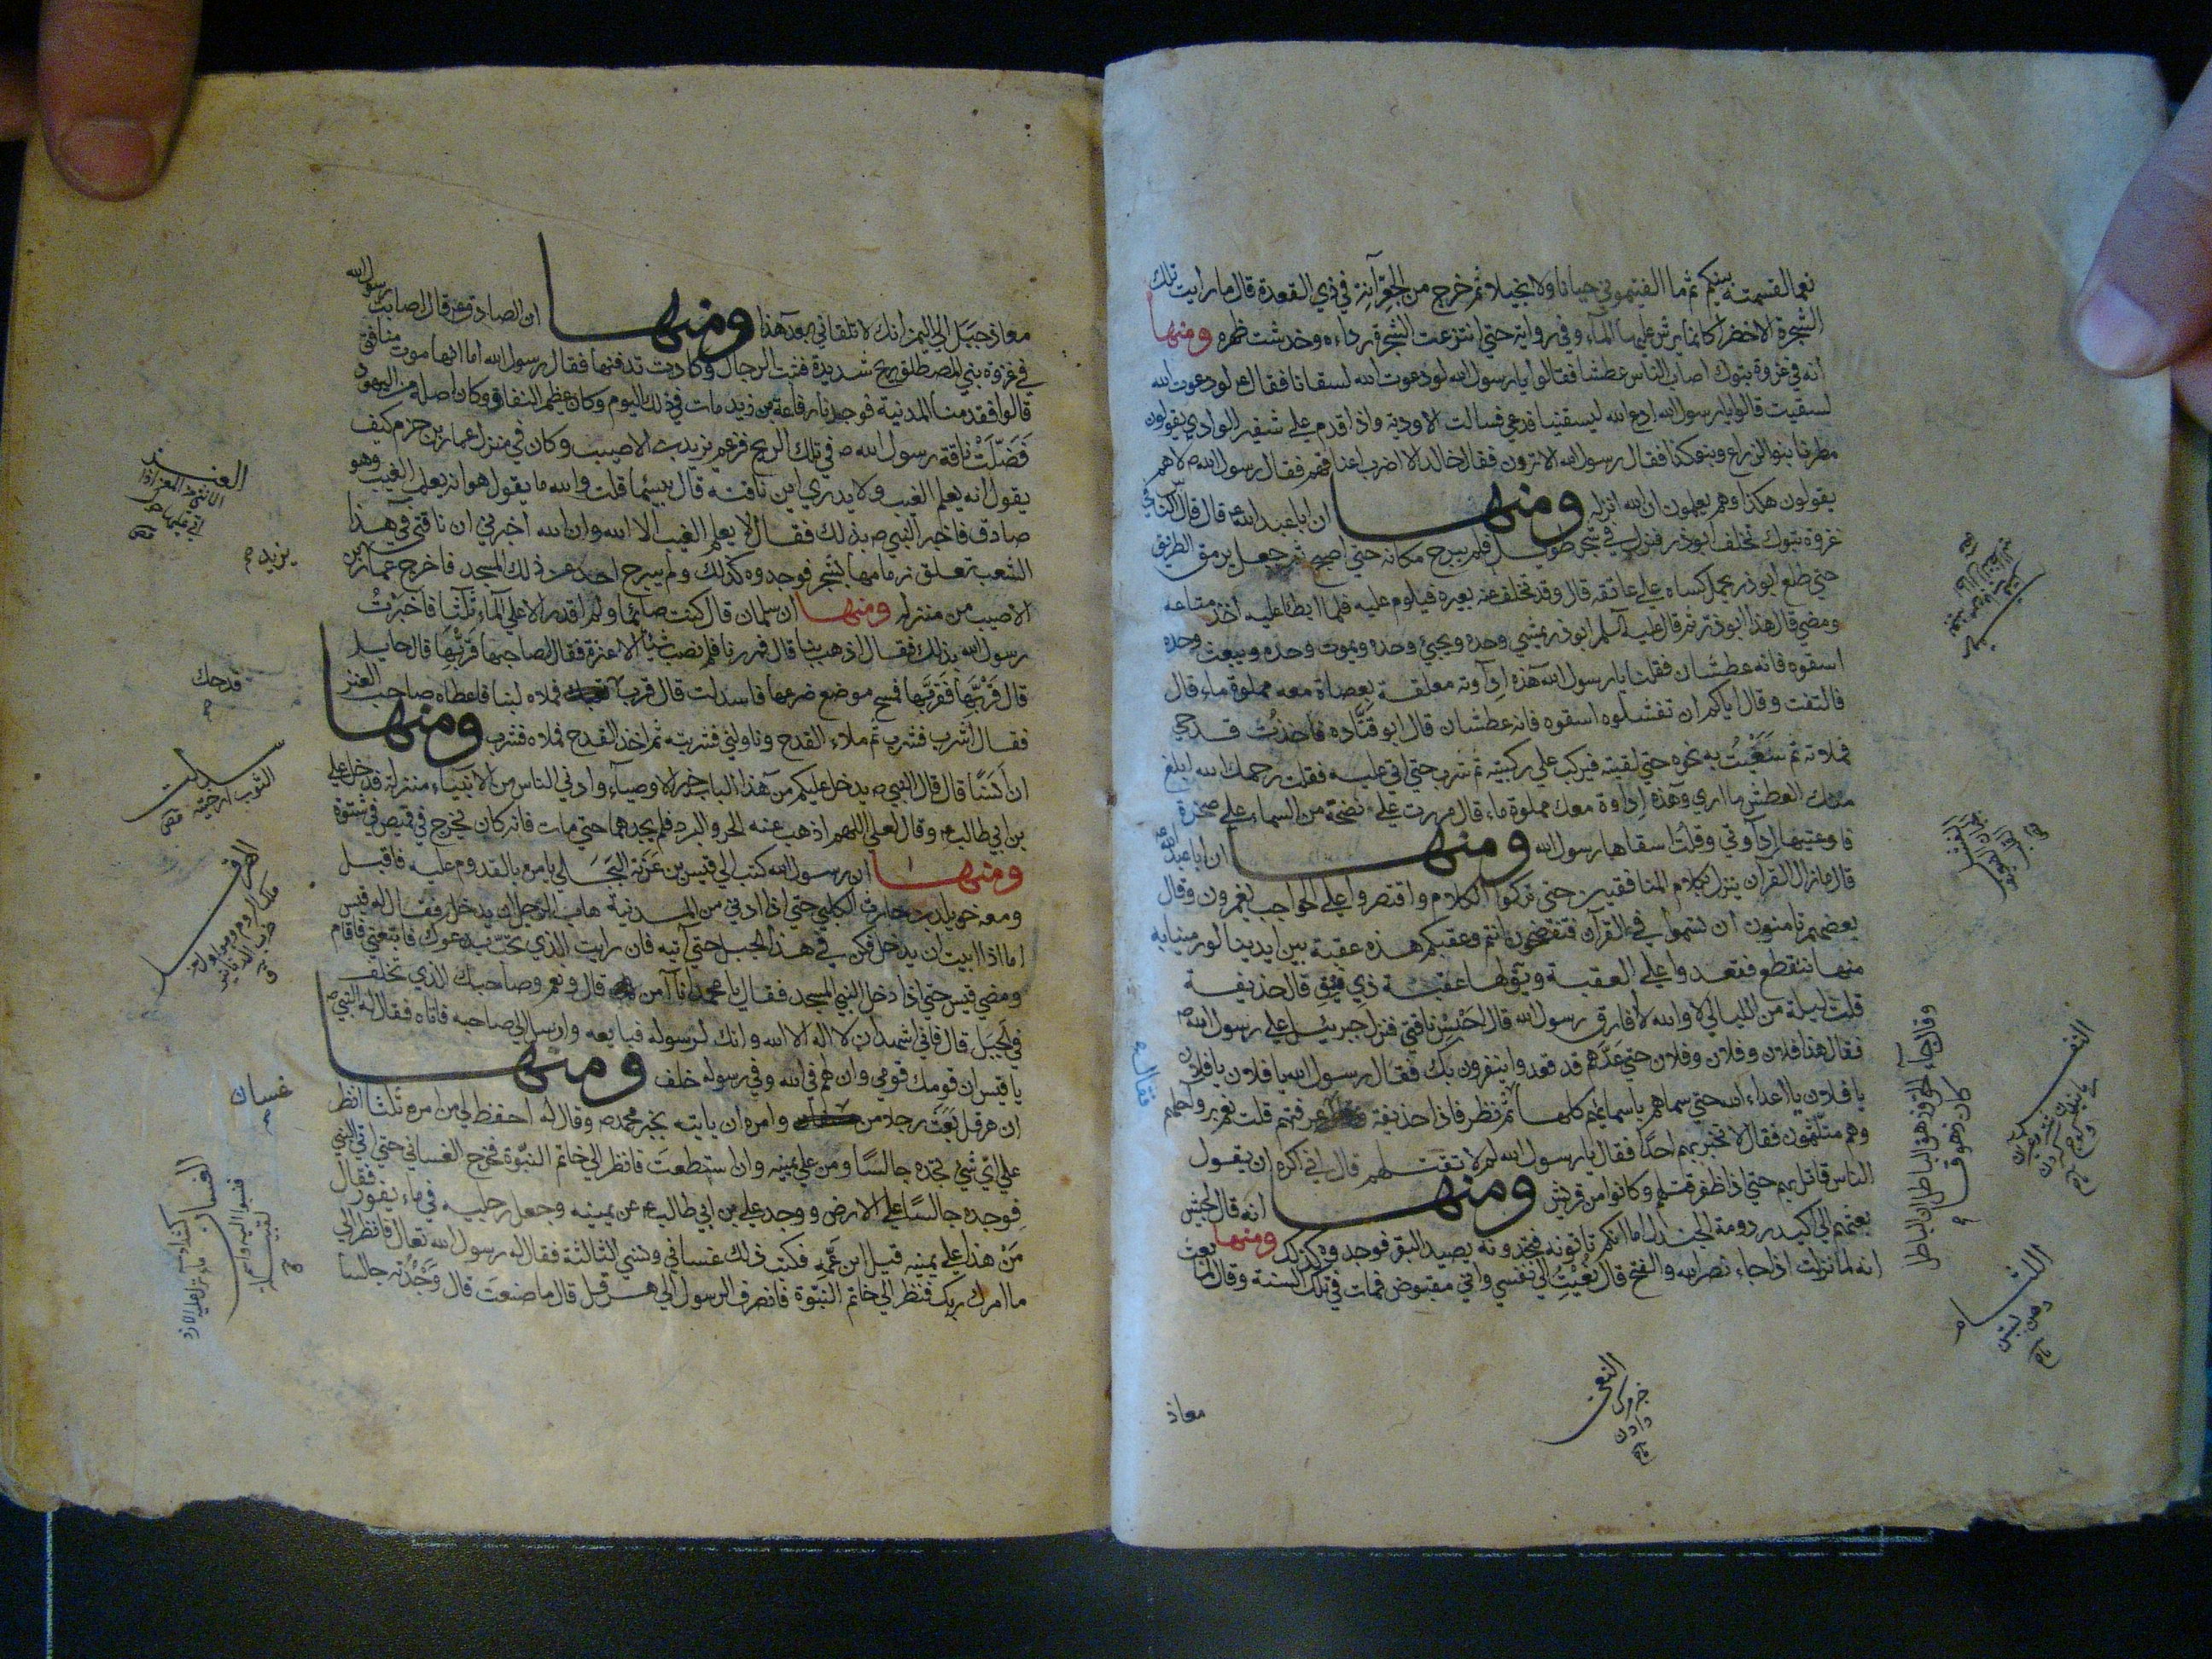 نعما لقسمته بينكم ثم ما الفيتموني جبانا ولا بخيلا ثم خرج من الجعرانة في ذي القعدة قال ما رايت تلك
الشجرة الا خضراء كانما يرش عليها الماء وفي رواية حتى انتزعت الشجرة رداءه وخدشت ظهره ومنها
انه في غزوة تبوك اصاب الناس عطش فقالوا يا رسول الله لو دعوت الله لسقانا فقال ع لو دعوت الله
لسقيت قالوا يا رسول الله ادع الله ليسقينا فدعى فسالت الاودية واذا قدم على شفير الوادي يقولون
مطرنا بنوء الذراع وبنوء كذا فقال رسول الله الا ترون فقال خالد الا اضرب اعناقهم فقال رسول الله ص لا هم
يقولون هكذا وهم يعلمون ان الله انزله ومنها ان ابا عبد الله ع قال قال الناس في
غزوة تبوك تخلف ابوذر فنزل في شجر طويل فلم يبرح مكانه حتى اصبح ثم جعل يرمق الطريق
حتى طلع ابوذر يحمل كساه على عاتقه قال وقد تخلف عنه بعيره فيلوم عليه فلما ابطا عليه اخذ متاعه
ومضى قال هذا ابوذر ثم قال عليه السلم ابوذر يمشي وحده ويجيء وحده ويموت وحده ويبعث وحده
اسقوه فانه عطشان فقلت يا رسول الله هذه اداوة معلقة بعصاة معه مملوة ماء قال
فالتفت وقال اياكم ان تفشلوه اسقوه فانه عطشان قال ابو قتاده فاخذت قدحي
فملاته ثم سعيت به نحوه حتى لقيته فبرك على ركبتيه ثم شرب حتى اتى عليه فقلت رحمك الله ابلغ
منك العطش ما ارى وهذه اداوة معك مملوة ماء قال مررت على نضحة من السماء على صخرة
فاوعيتها اداوتي وقلت اسقاها رسول الله ومنها ان ابا عبد الله ع
قال ما زال القرآن ينزل بكلام المنافقين حتى تركوا الكلام واقتصروا على الحواجب يغمزون وقال
بعضهم تامنون ان تسموا في القرآن فتفتضحون انتم وعقبكم هذه عقبة بين ايدينا لو رمينا به
منها تتقطع فقعدوا على العقبة ويقولها عقبة ذي فيق قال حذيفة
قلت ليلة من الليالي لا والله لا افارق رسول الله قال ناقتي فنزل جبرئيل على رسول الله ص
فقال هذا فلان وفلان وفلان حتى عدهم قد قعدوا ينفرون بك فقال رسول الله يا فلان يا فلان
يا فلان يا اعداء الله حتى سماهم باسمائهم كلها ثم نظر فاذا حذيفة عرفتهم قلت نعم برواحلهم
وهم متلثمون فقال لا تخبر بهم احدا فقال يا رسول الله لم لا تقتلهم قال اني اكره ان يقول
الناس قاتل بهم حتى اذا ظفر قتلهم وكانوا من قريش ومنها انه قال لجيش
بعثهم الى اكيدر دومة الجندل اما انكم تاتونه فتجدونه يصيد البقر فوجدوه كذلك ومنها
انه لما نزلت اذا جاء نصر الله والفتح قال نعيت الي نفسي واني مقبوض فمات في تلك السنة وقال لما بعث
فقال
وقل جاء الحق وزهق الباطل ان الباطل
كان زهوقا
النعي
دادن
معاذ
معاذ جبل الى اليمن انك لا تلقاني بعد هذا ومنها ان الصادق ع قال اصابت رسول الله
في غزوه بني المصطلق ريح شديدة فقت الرحال وكادت تدفنها فقال رسول الله اما انها موت منافق
قالوا فقدمنا المدينة فوجدنا رفاعة بن زيد مات في ذلك اليوم وكان عظيم النفاق وكان اصله من اليهود
فضلت ناقة رسول الله ص في تلك الريح فزعم يزيد بن الاصيب وكان في منزل عمارة بن حزم كيف
يقول انه يعلم الغيب ولا يدري اين ناقته قال بئسما قلت والله ما يقول هو انه يعلم الغيب وهو
صادق فاخبر النبي ص بذلك فقال لا يعلم الغيب الا الله وان الله اخبرني ان ناقتي في هذا
الشعب تعلق زمامها بشجر فوجدوه كذلك ولم يبرح احد عن ذلك المسجد فاخرج عمارة بن
الاصيب من منزله ومنها ان سلمان قال كنت صائما ولم اقدر الا على الماء ثلثا فاخبرت
رسول الله بذلك فقال اذهب بنا قال فمررنا فلم نصب شيئا الا عنزة فقال لصاحبها قربها قال حايل
قال قربها فقربها فمسح موضع ضرعها فاسدلت قال قرب فملاه لبنا فاعطاه صاحب العنز
فقال اشرب فشرب ثم ملاء القدح وناولني فشربته ثم اخذ القدح فملاه فشرب ومنها
ان انسا قال قال النبي ص يدخل عليكم من هذا الباب خير الاوصياء وادنى الناس من الانبياء منزلة فدخل علي
بن ابي طالب ع وقال لعلي اللهم اذهب عنه الحر والبرد فلم يجدهما حتى مات فانه كان يخرج في قميص في شتوة
ومنها ان رسول الله كتب الى قيس بن عرنة البجلي يامره بالقدوم عليه فاقبل
ومعه خويلد بن حارث الكلبي حتى اذا ادنى من المدينة هاب الرجل ان يدخل فقال له قيس
اما اذا ابيت ان يدخل فكن في هذا الجبل حتى آتيه فان رايت الذي تحب ادعوك فاتبعني فاقام
ومضى قيس حتى اذا دخل النبي المسجد فقال يا محمد انا آمن قال ونعم وصاحبك الذي تخلف
في الجبل قال فاني اشهد ان لا اله الا الله وانك لرسوله فبايعه وارسل الى صاحبه فاتاه فقال له النبي ص
يا قيس ان قومك قومي وان لهم في الله وفي رسوله خلف ومنها
ان هرقل بعث رجلا من وامره ان ياتيه بخبر محمد ص وقال له احفظ لي من امره ثلثا انظر
على اي شيء تجده جالسا ومن على يمينه وان استطعت فانظر الى خاتم النبوة فخرج الغساني حتى اتى النبي
فوجده جالسا على الارض ووجد علي بن ابي طالب ع عن يمينه وجعل رجليه في ماء يفور فقال
من هذا على يمينه قيل ابن عمه فكتب ذلك غساني ونسي الثالثة فقال له رسول الله تعال فانظر الى
ما امرك ربك فنظر الى خاتم النبوة فانصرف الرسول الى هرقل قال ما صنعت قال وجدته جالسا
العنز
يزيد
قدحك
سدلت
الثوب ارخيته
هرقل
غسان
الغسان